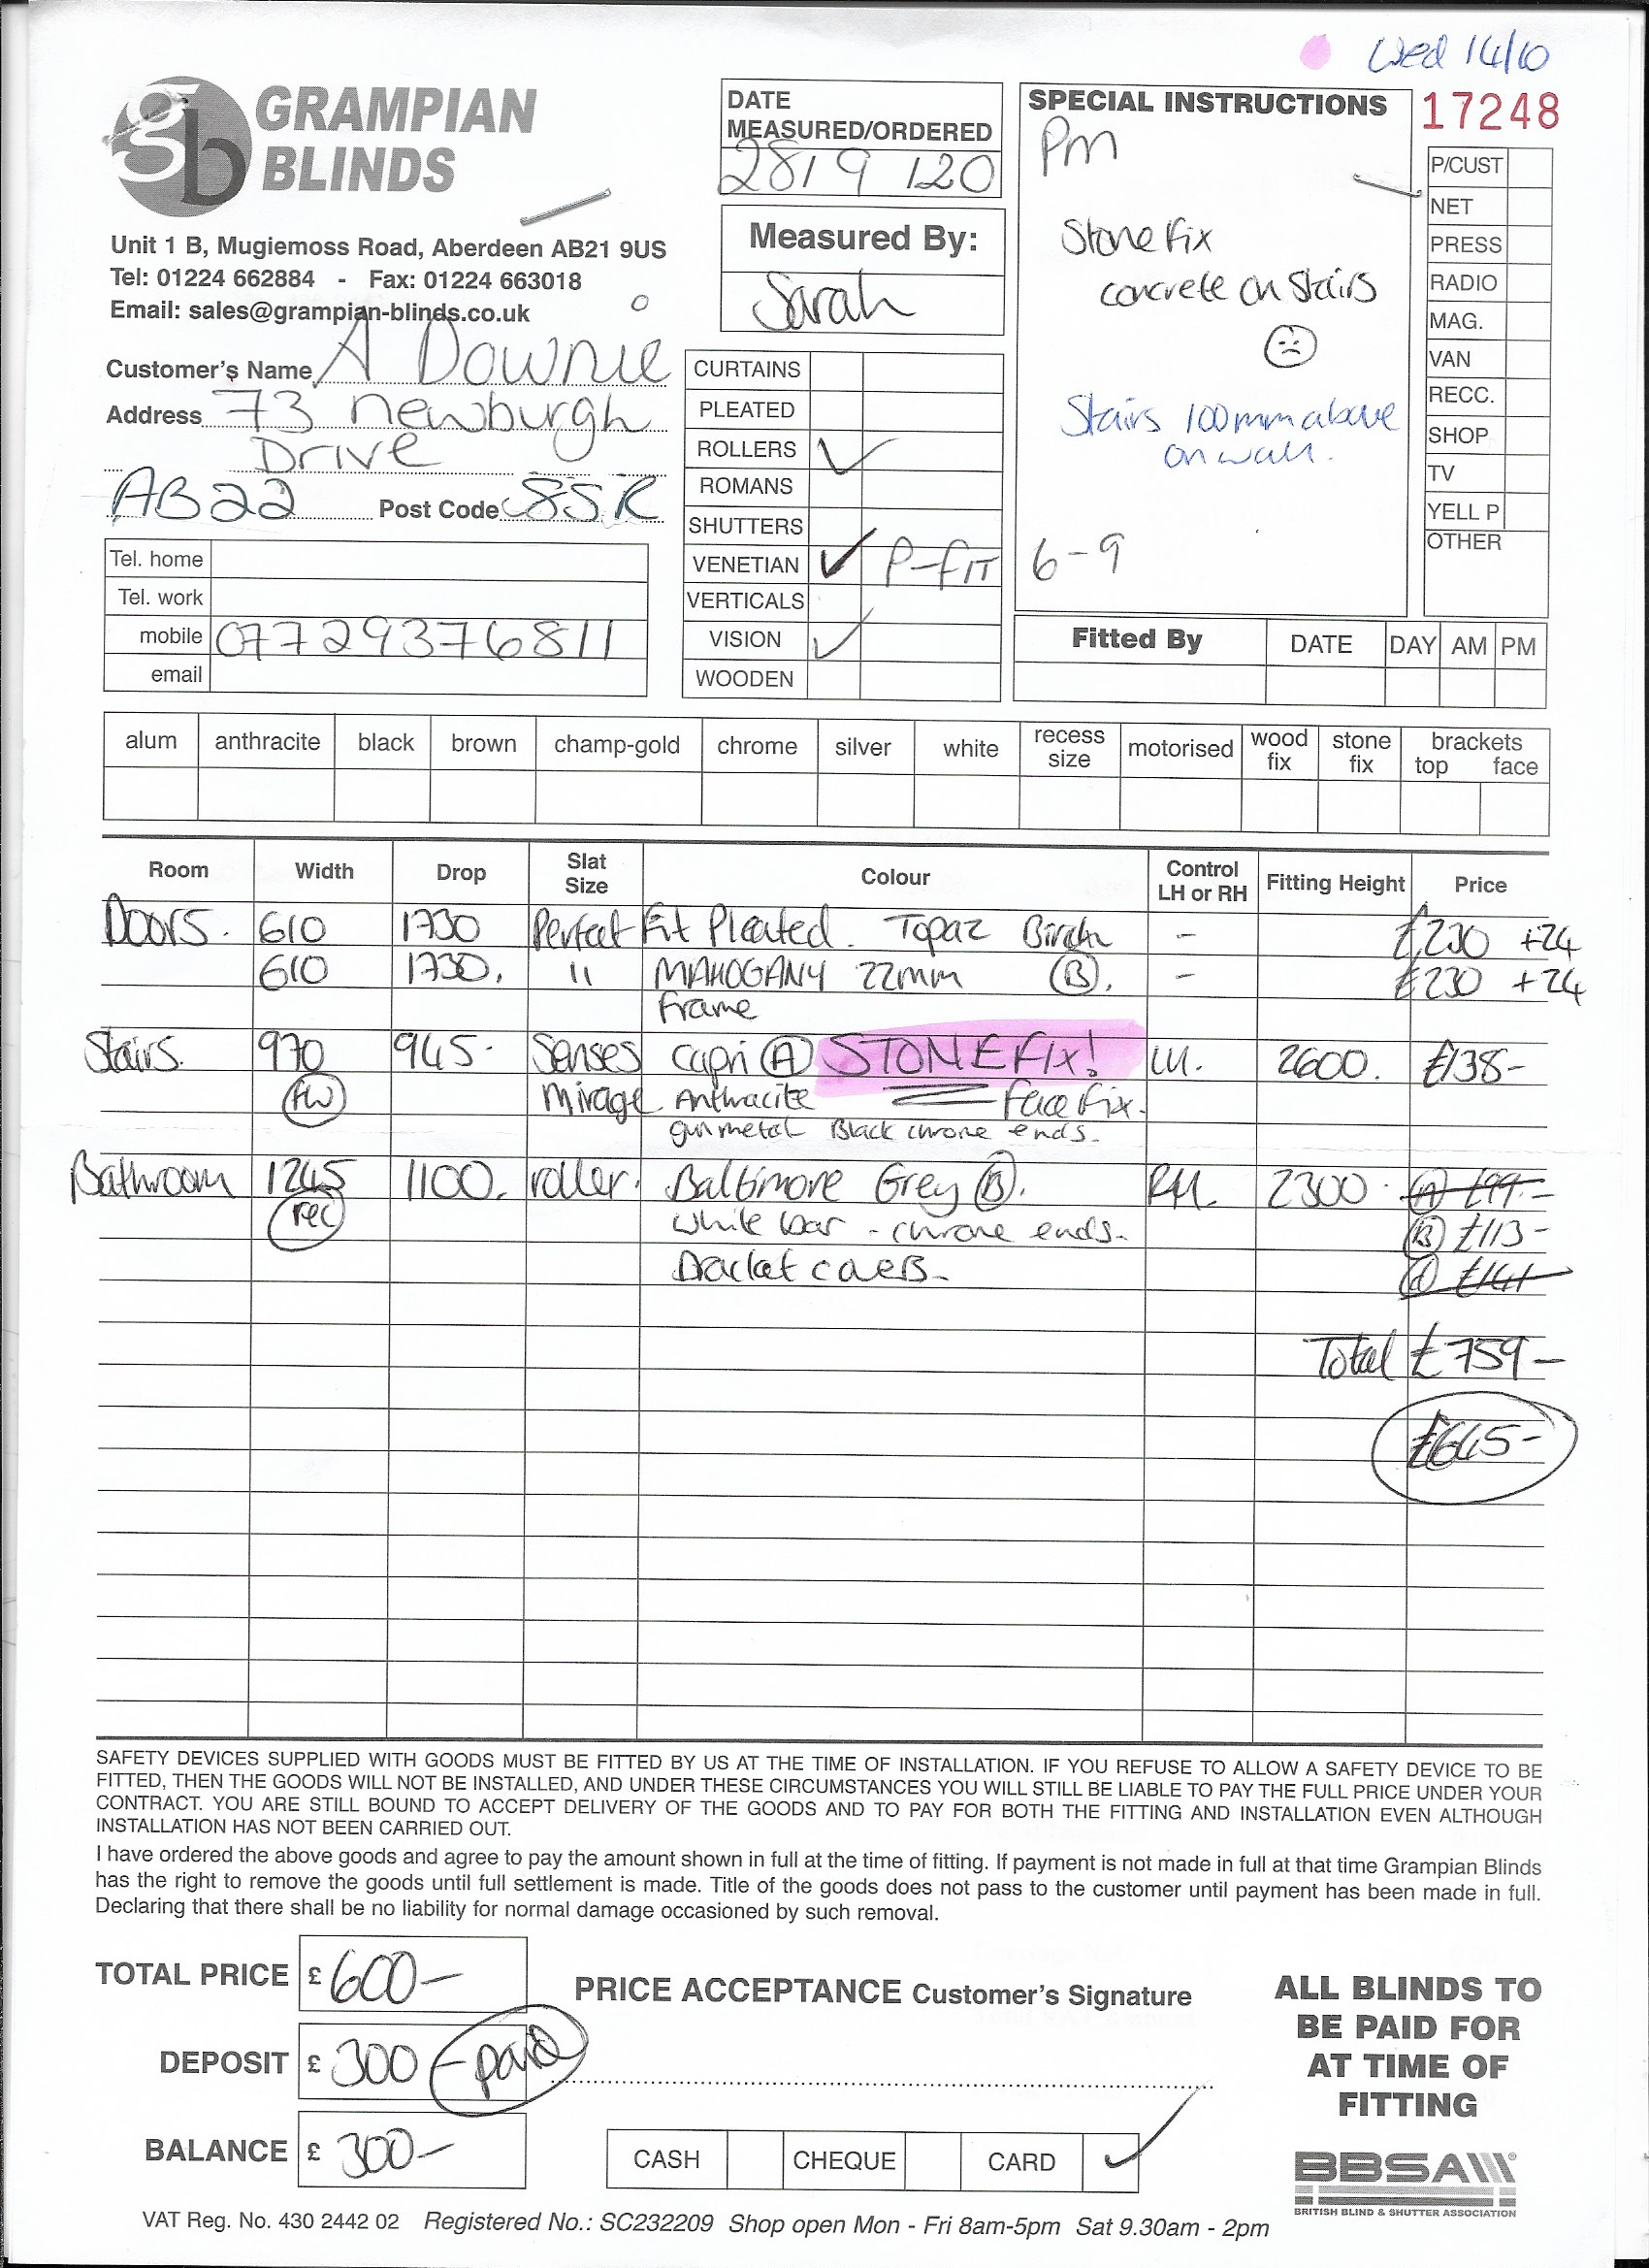 Wed 14/10
GRAMPIAN
BLINDS
Unit 1 B, Mugiemoss Road, Aberdeen AB21 9US
Tel: 01224 662884 - Fax: 01224 663018
Email: sales@grampian-blinds.co.uk
DATE
MEASURED/ORDERED
28/9/20
Measured By:
Sarah
SPECIAL INSTRUCTIONS
Pm
Stone fix
concrete on stairs
Stairs 100mm above
on wall.
6-9
17248
P/CUST
NET
PRESS
RADIO
MAG.
VAN
RECC.
SHOP
TV
YELL P
OTHER
Customer's Name A Downie
Address 73 Newburgh
Drive
AB22 Post Code 8SR
Tel. home
Tel. work
mobile 07729376811
email
CURTAINS
PLEATED
ROLLERS ✓
ROMANS
SHUTTERS
VENETIAN ✓ P-FIT
VERTICALS
VISION ✓
WOODEN
Fitted By DATE DAY AM PM
alum anthracite black brown champ-gold chrome silver white recess size motorised wood fix stone fix brackets top face
Room Width Drop Slat Size Colour Control LH or RH Fitting Height Price
Doors. 610 1730 Perfect Fit Pleated. Topaz Birch - £230 +24
610 1730. 11 MAHOGANY 22mm (B). - £230 +24
frame
Stairs. 970 945. Senses Capri (A) STONEFIX! LH. 2600. £138-
Mirage Anthracite face fix.
gunmetal Black chrome ends.
Bathroom 1245 1100. roller. Baltimore Grey (B). RH. 2300. (A) £99-
rec white bar - chrome ends. (B) £113-
Bracket covers. £141
Total £759-
£645-
SAFETY DEVICES SUPPLIED WITH GOODS MUST BE FITTED BY US AT THE TIME OF INSTALLATION. IF YOU REFUSE TO ALLOW A SAFETY DEVICE TO BE
FITTED, THEN THE GOODS WILL NOT BE INSTALLED, AND UNDER THESE CIRCUMSTANCES YOU WILL STILL BE LIABLE TO PAY THE FULL PRICE UNDER YOUR
CONTRACT. YOU ARE STILL BOUND TO ACCEPT DELIVERY OF THE GOODS AND TO PAY FOR BOTH THE FITTING AND INSTALLATION EVEN ALTHOUGH
INSTALLATION HAS NOT BEEN CARRIED OUT.
I have ordered the above goods and agree to pay the amount shown in full at the time of fitting. If payment is not made in full at that time Grampian Blinds
has the right to remove the goods until full settlement is made. Title of the goods does not pass to the customer until payment has been made in full.
Declaring that there shall be no liability for normal damage occasioned by such removal.
TOTAL PRICE £ 600-
DEPOSIT £ 300 - paid
BALANCE £ 300-
PRICE ACCEPTANCE Customer's Signature
CASH CHEQUE CARD ✓
ALL BLINDS TO
BE PAID FOR
AT TIME OF
FITTING
BBSA
BRITISH BLIND & SHUTTER ASSOCIATION
VAT Reg. No. 430 2442 02 Registered No.: SC232209 Shop open Mon - Fri 8am-5pm Sat 9.30am - 2pm